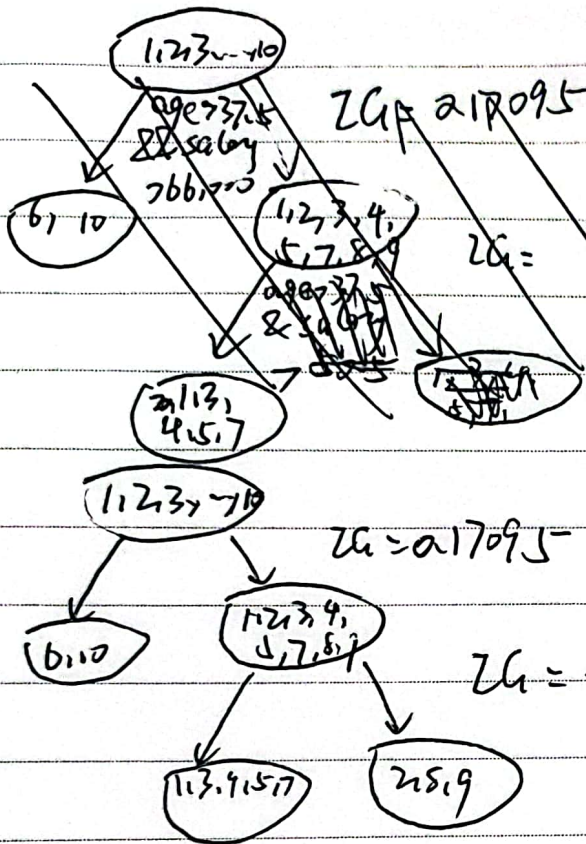 1,2,3~~→10
age>37.5
&& salary
IG = 0.17095
6, 10
1,2,3,4,
5,7,8,9
IG =
age>37.5
2,1,3,
4,5,7
1,2,3,~→10
IG = 0.17095
6,10
1,2,3,4,
5,7,8,9
IG =
1,3,4,5,7
2,8,9